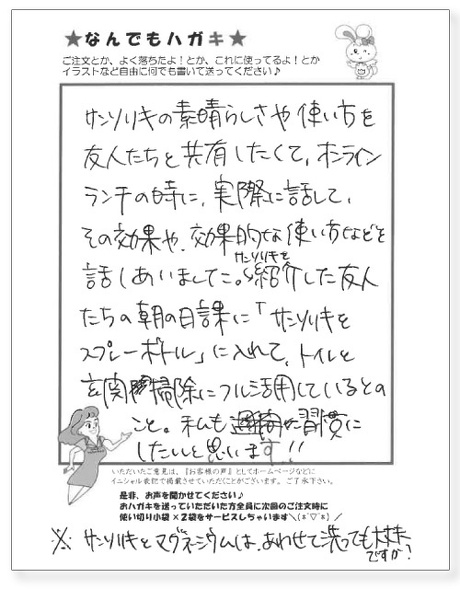 ★なんでもハガキ★
ご注文とか、よく落ちたよ！とか、これに使ってるよ！とか
イラストなど自由に何でも書いて送ってください♪
サンソリキの素晴らしさや使い方を
友人たちと共有したくて、オンライン
ランチの時に、実際に話して、
その効果や、効果的な使い方などを
サンソリキを
話しあいました。紹介した友人
たちの朝の日課に「サンソリキを
スプレーボトル」に入れて、トイレと
玄関掃除にフル活用しているとの
こと。私も習慣に
したいと思います!!
いただいたご意見は、『お客様の声』としてホームページなどに
イニシャル表記で掲載させていただことがございます。ご了承下さい。
是非、お声を聞かせてください♪
おハガキを送っていただいた方全員に次回のご注文時に
使い切り小袋×2袋をサービスしちゃいます＼(*ˊ▽ˋ*)／
※ サンソリキとマグネシウムは、あわせて洗っても大丈夫
ですか？